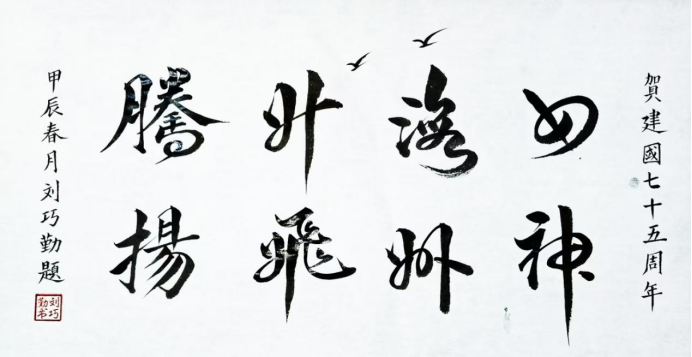 賀建國七十五周年
四海升騰
神州飛揚
甲辰春月刘巧勤題
刘巧勤书